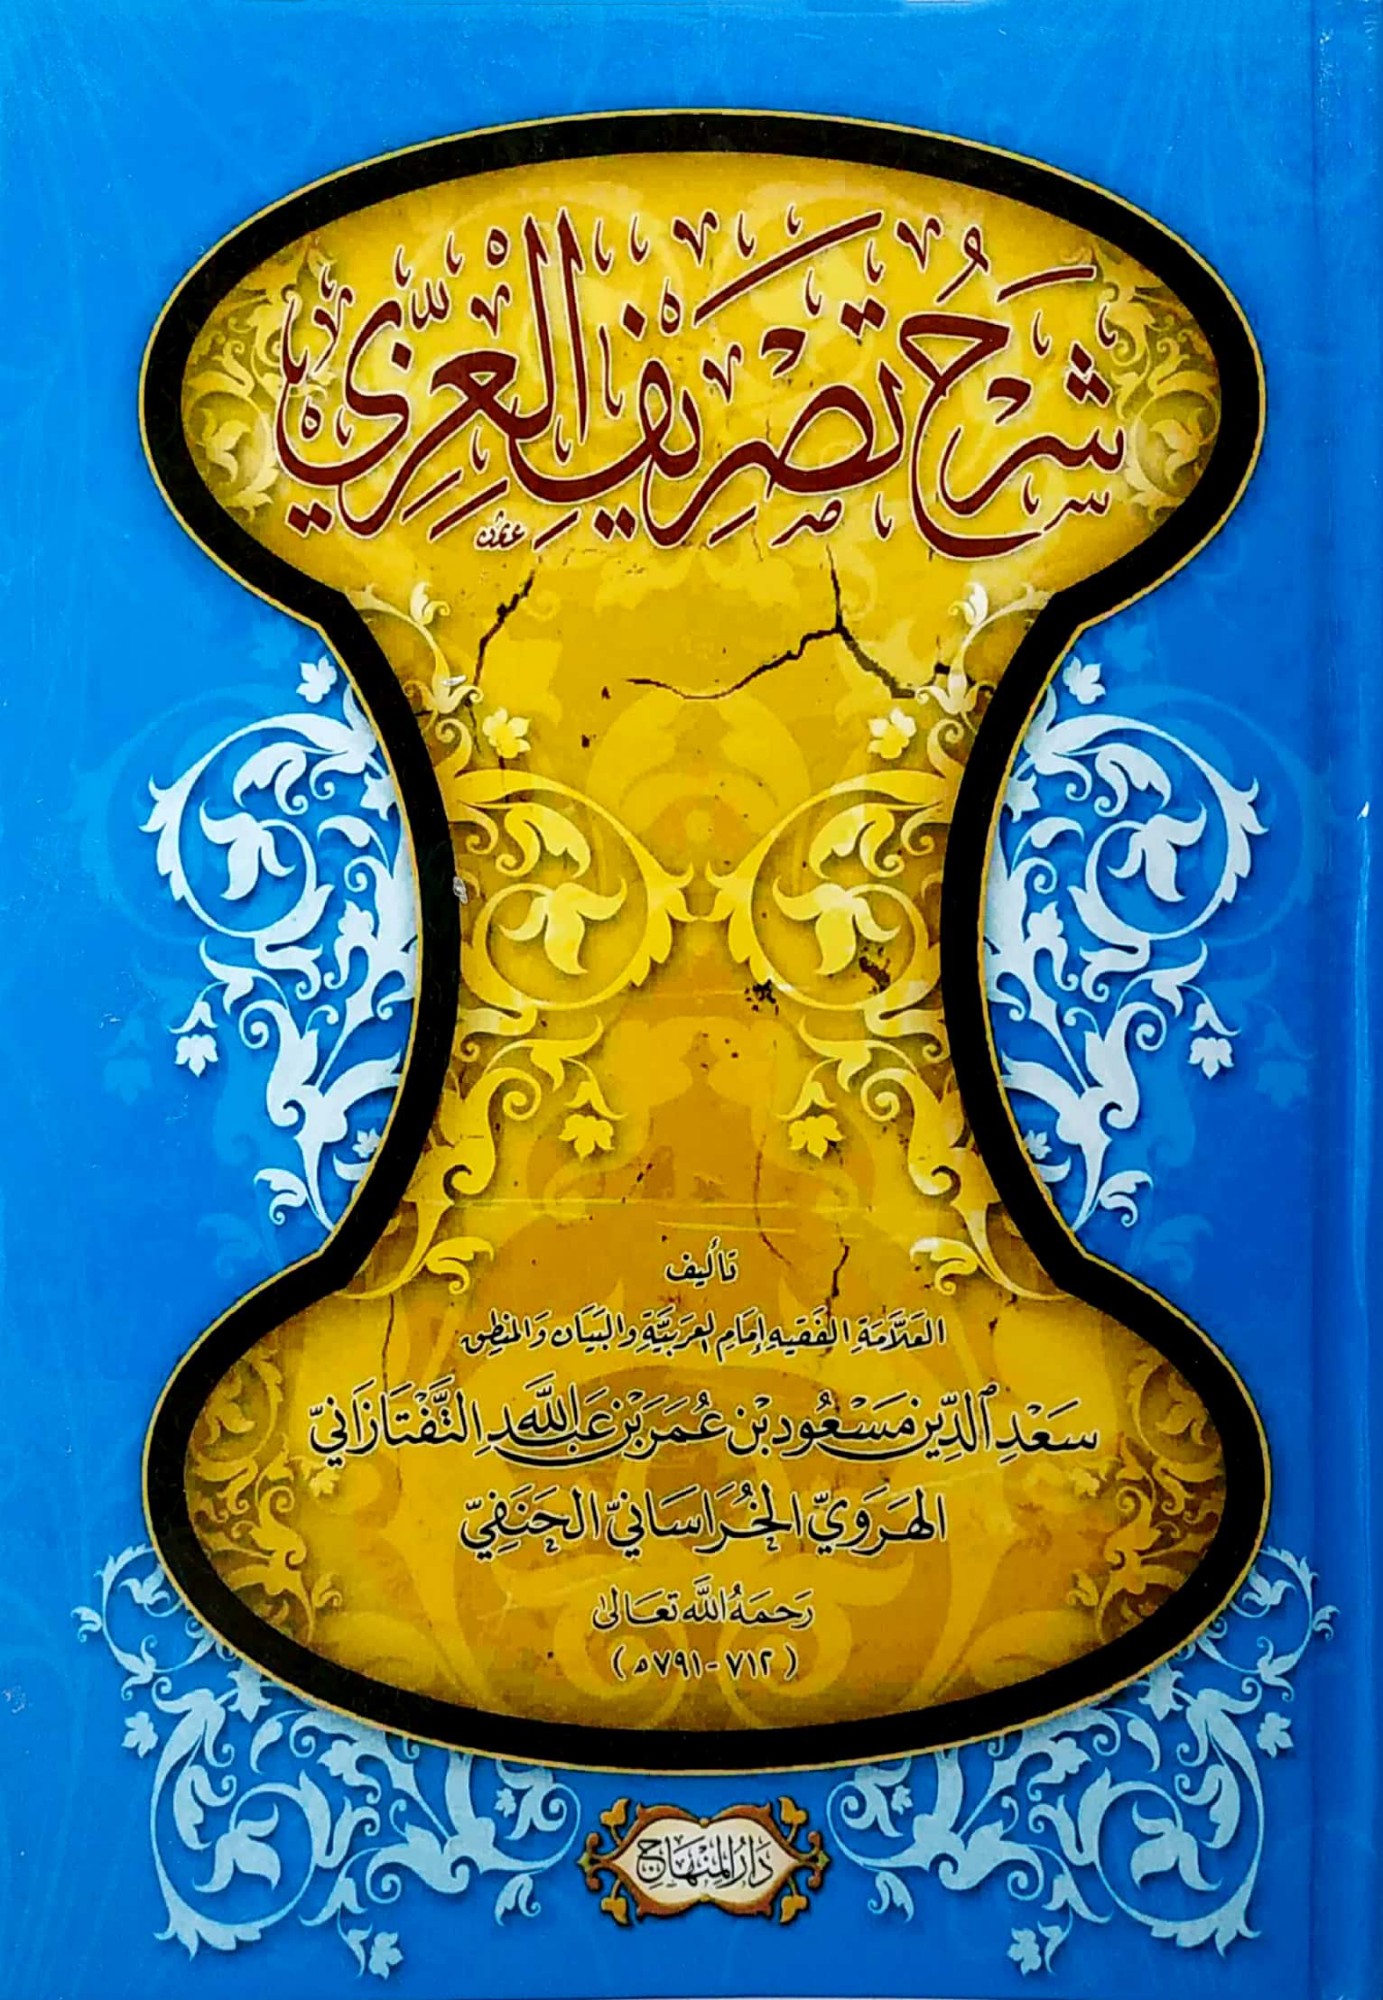 شَرْحُ تَصْرِيفِ الْعِزِّي
تأليف
العَلَّامَةِ الفَقيهِ إمَامِ العَرَبيَّةِ والبَيَان والمنطِق
سَعْدِ الدِّين مَسْعُود بْن عُمَر بْن عَبدِ اللَّه التَّفْتَازَانيّ
الهَرَويّ الخُرَاسَانيّ الحَنَفِيّ
رَحمَهُ اللَّه تعَالىٰ
(٧١٢-٧٩١هـ)
دَارُ المِنْهَاج